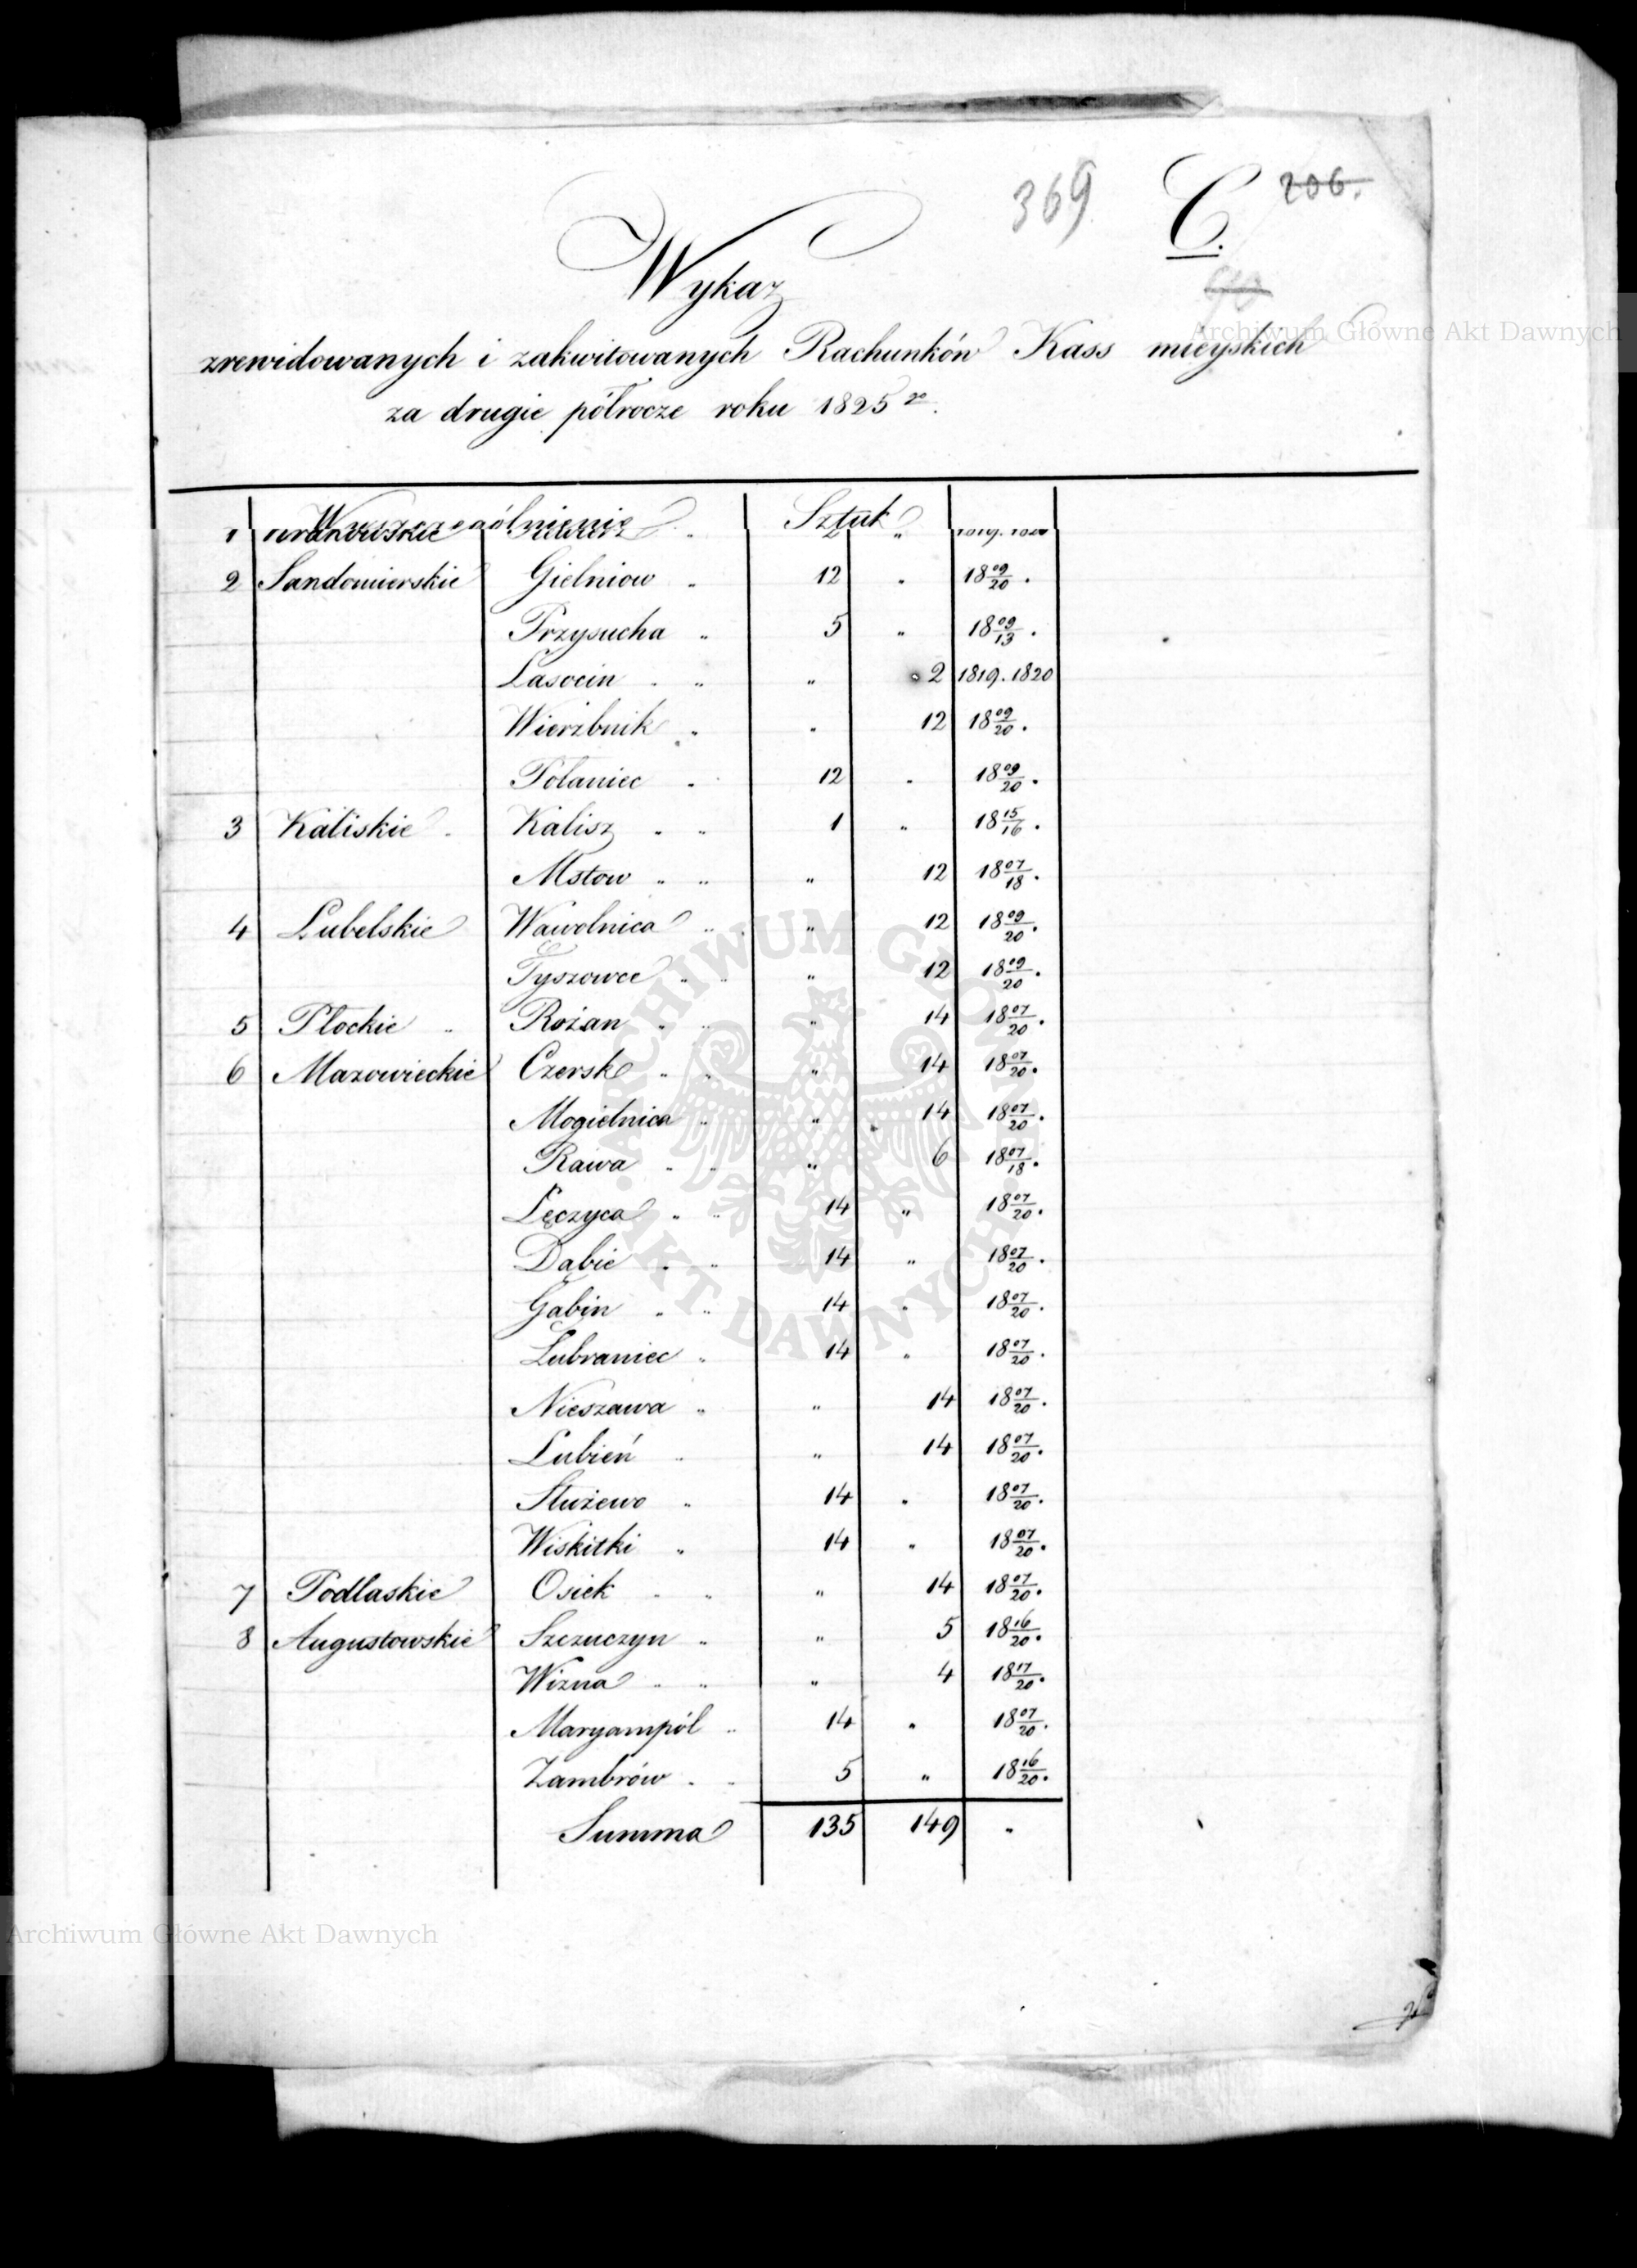 369 C. 206.
Wykaz
Archiwum Główne Akt Dawnych
zrewidowanych i zakwitowanych Rachunków Kass mieyskich
za drugie półrocze roku 1825go.
Wyszczególnienie Sztuk
1 Krakowskie Siewierz " 2 " 1819. 1820
2 Sandomierskie Gielniow " 12 " 18 09/20.
Przysucha " 5 " 18 09/13.
Lasocin " " " 2 1819. 1820
Wierzbnik " " 12 18 09/20.
Polaniec " 12 " 18 09/20.
3 Kaliskie " Kalisz " " 1 " 18 15/16.
Mstow " " " 12 18 07/18.
4 Lubelskie Wawolnica " " 12 18 09/20.
Tyszowce " " " 12 18 09/20.
5 Płockie " Rożan " " " 14 18 07/20.
6 Mazowieckie Czersk " " " 14 18 07/20.
Mogielnica " " 14 18 07/20.
Rawa " " " 6 18 07/18.
Lęczyca " " 14 " 18 07/20.
Dąbie " " 14 " 18 07/20.
Gąbin " " 14 " 18 07/20.
Lubraniec " 14 " 18 07/20.
Nieszawa " " 14 18 07/20.
Lubień " " 14 18 07/20.
Służewo " 14 " 18 07/20.
Wiskitki " 14 " 18 07/20.
7 Podlaskie Osiek " " " 14 18 07/20.
8 Augustowskie Szczuczyn " " 5 18 16/20.
Wizna " " " 4 18 17/20.
Maryampól " 14 " 18 07/20.
Zambrów " " 5 " 18 16/20.
Summa 135 149 "
ARCHIWUM GŁÓWNE AKT DAWNYCH
Archiwum Główne Akt Dawnych